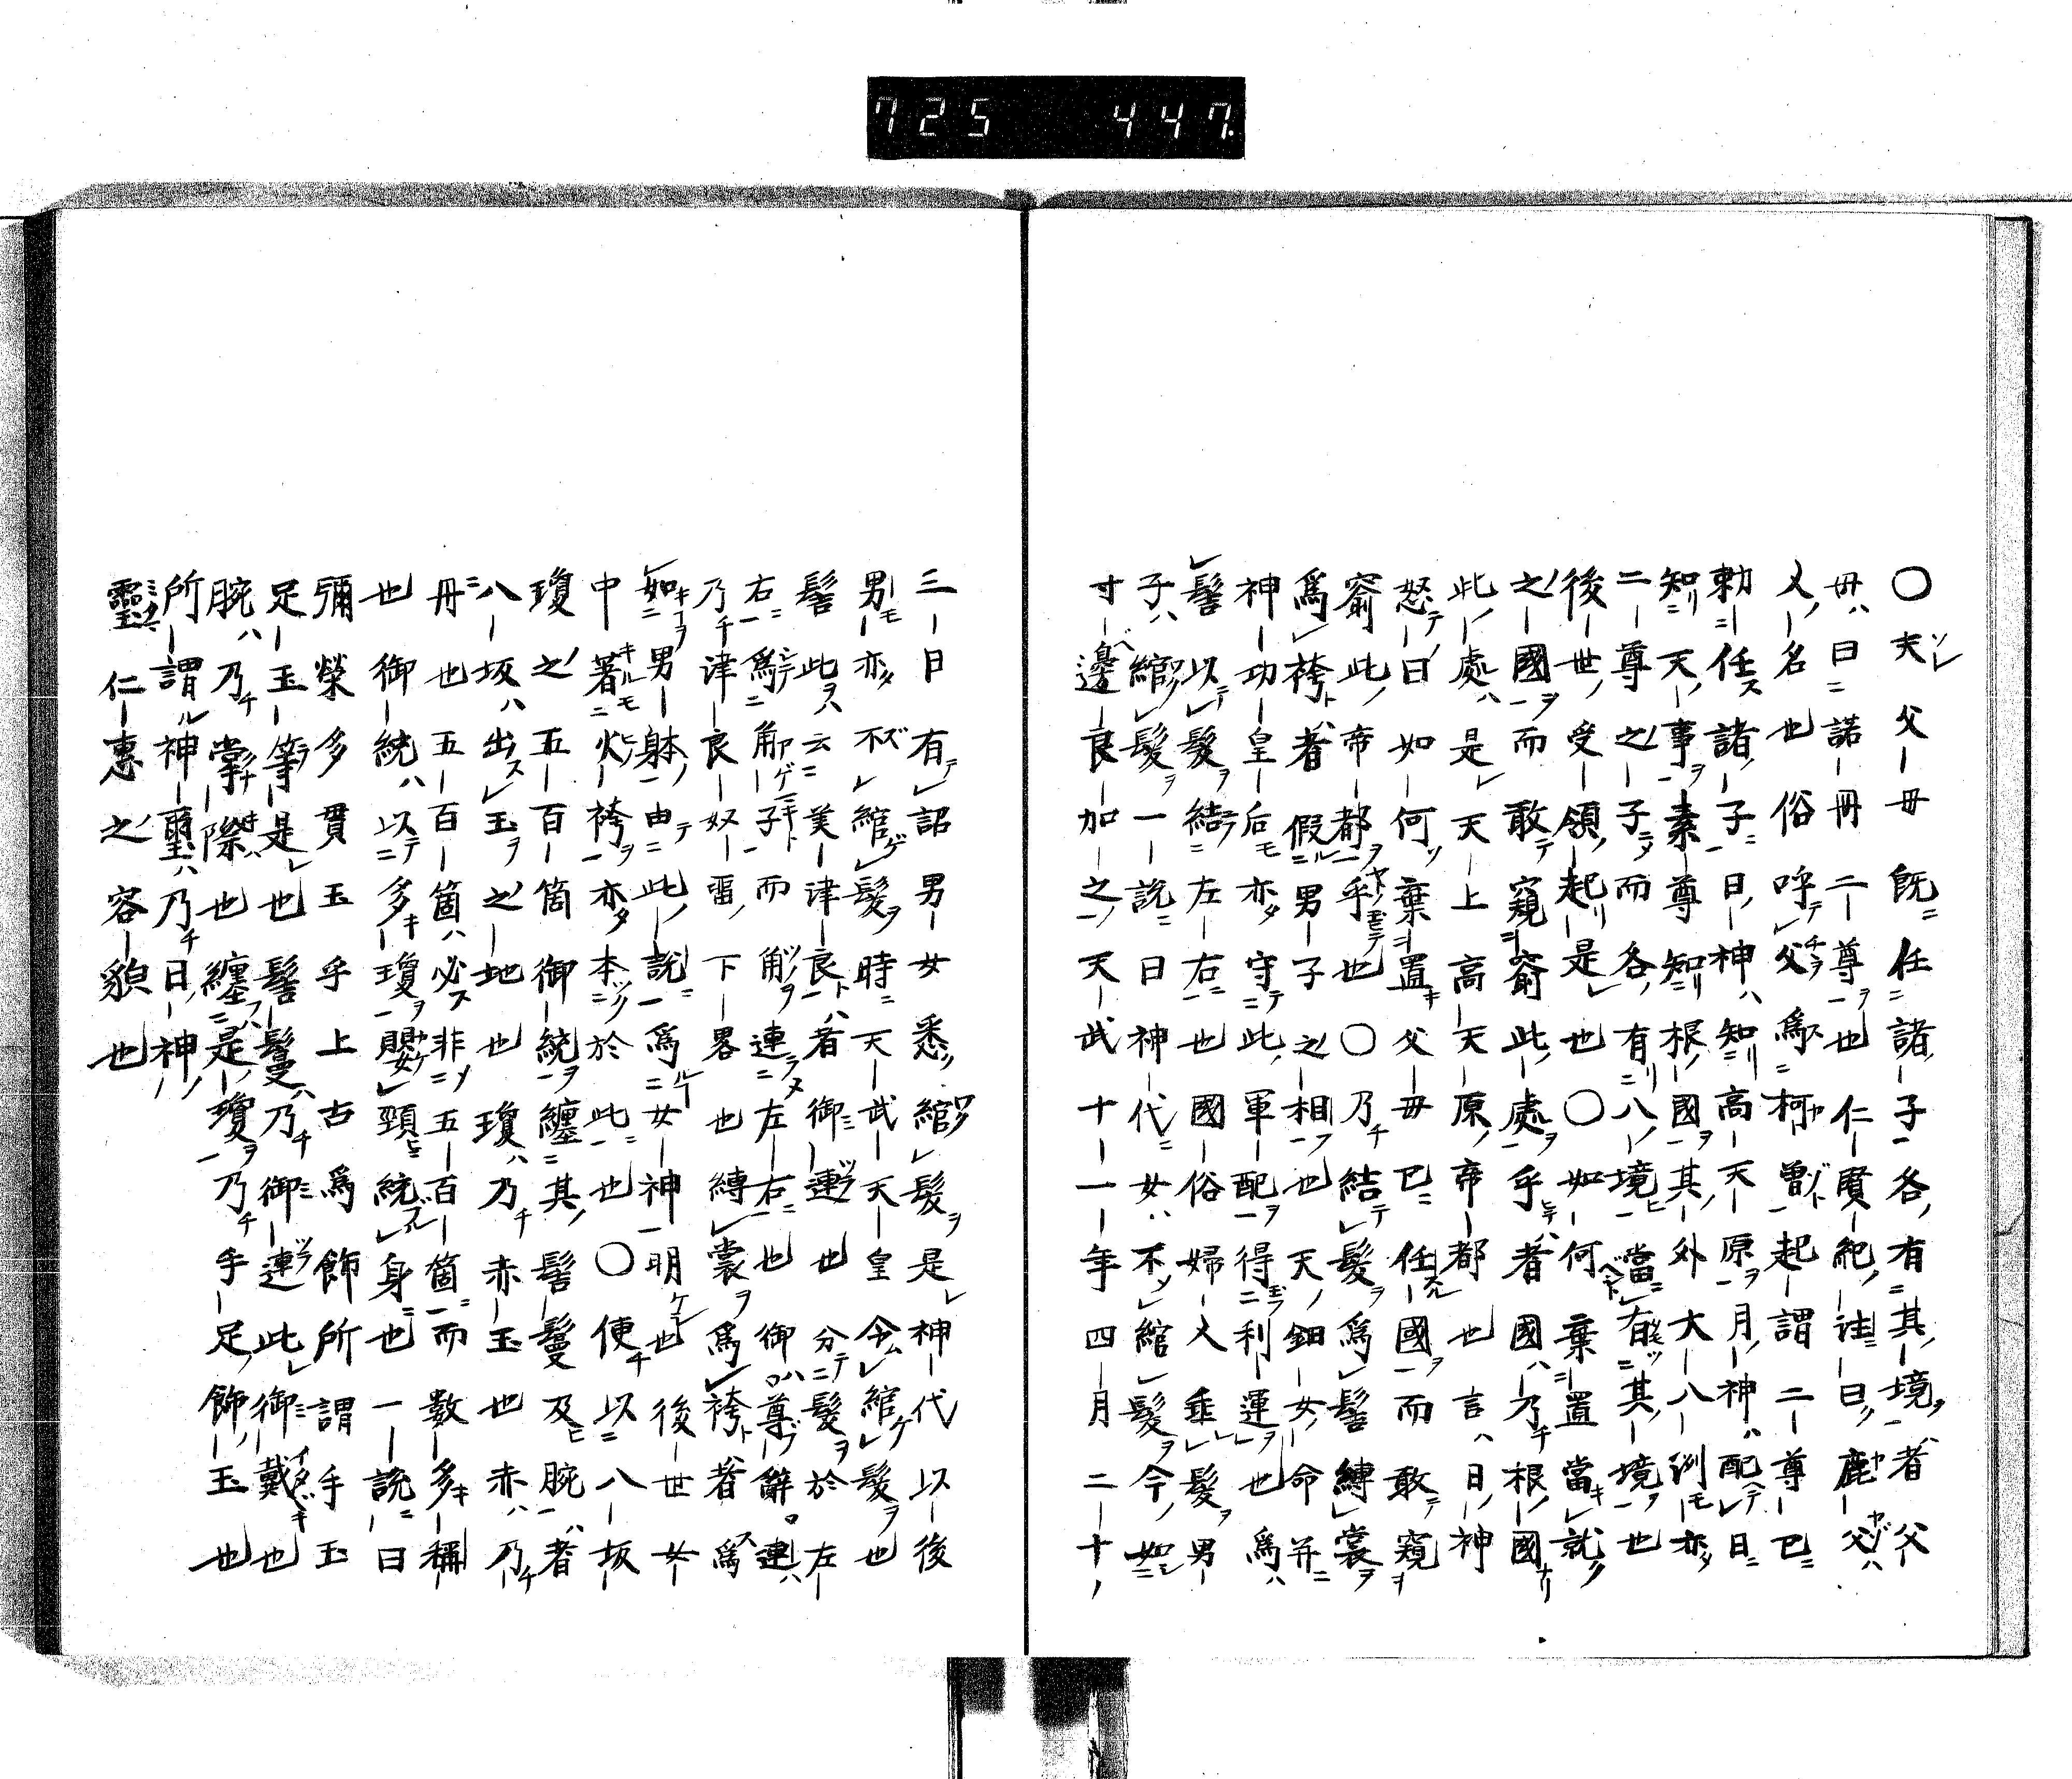 725 447
〇夫父母既任諸子各有其境者父
母曰諾冊二尊也仁賢紀註曰鹿父
人名也俗呼父為柯曾起謂二尊已
勅任諸子日神知高天原月神配日
知天事素尊知根國其外大八洲亦
二尊之子而各有八境當有其境也
後世受領起是也〇如何棄置當就
之國而敢窺窬此處乎者國乃根國
此處是天上高天原帝都也言日神
怒曰如何棄置父母已任國而敢窺
窬此帝都乎也〇乃結髮為髻縛裳
為袴著假男子之相也天鈿女命并
神功皇后亦守此軍配得利運也為
髻以髮結左右也國俗婦人垂髮男
子綰髮一說曰神代女不綰髮今如
寸邊良加之天武十一年四月二十
三日有詔男女悉綰髮是神代以後
男亦不綰髮時天武天皇令綰髮也
髻此云美津良者御連也分髮於左
右為角子而角連左右也御尊辭連
乃津良奴畱下畧也縛裳為袴者為
如男躰由此說為女神明也後世女
中著火袴亦本於此也〇便以八坂
瓊之五百箇御統纏其髻鬘及腕者
八坂出玉之地也瓊乃赤玉也赤乃
丹也五百箇必非五百箇而數多稱
也御統以多瓊嬰頸統身也一說曰
彌榮多貫玉乎上古為飾所謂手玉
足玉等是也髻鬘乃御連此御戴也
腕乃掌際也纏是瓊乃手足飾玉也
所謂神璽乃日神
靈仁惠之容貌也